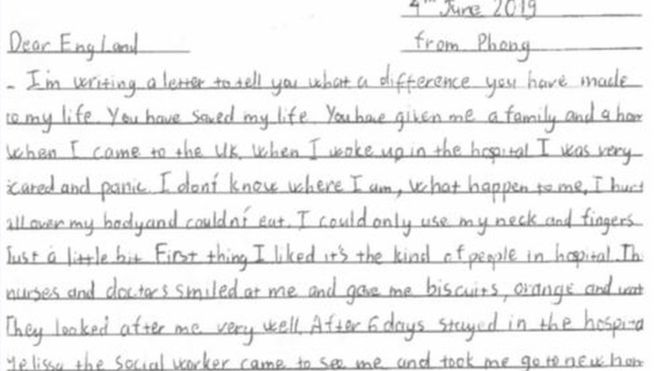 4th June 2019
Dear England
from Phong
- I'm writing a letter to tell you what a difference you have made
to my life. You have saved my life. You have given me a family and a hom
when I came to the UK. When I woke up in the hospital I was very
scared and panic. I doní know where I am, what happen to me, I hurt
all over my body and couldní eat. I could only use my neck and fingers
Just a little bit First thing I liked it's the kind of people in hospital. Th
nurses and doctors smiled at me and gave me biscuits, orange and wat
They looked after me very well. After 6 days stayed in the hospita
Melissa the social worker came to see me and took me go to new hom